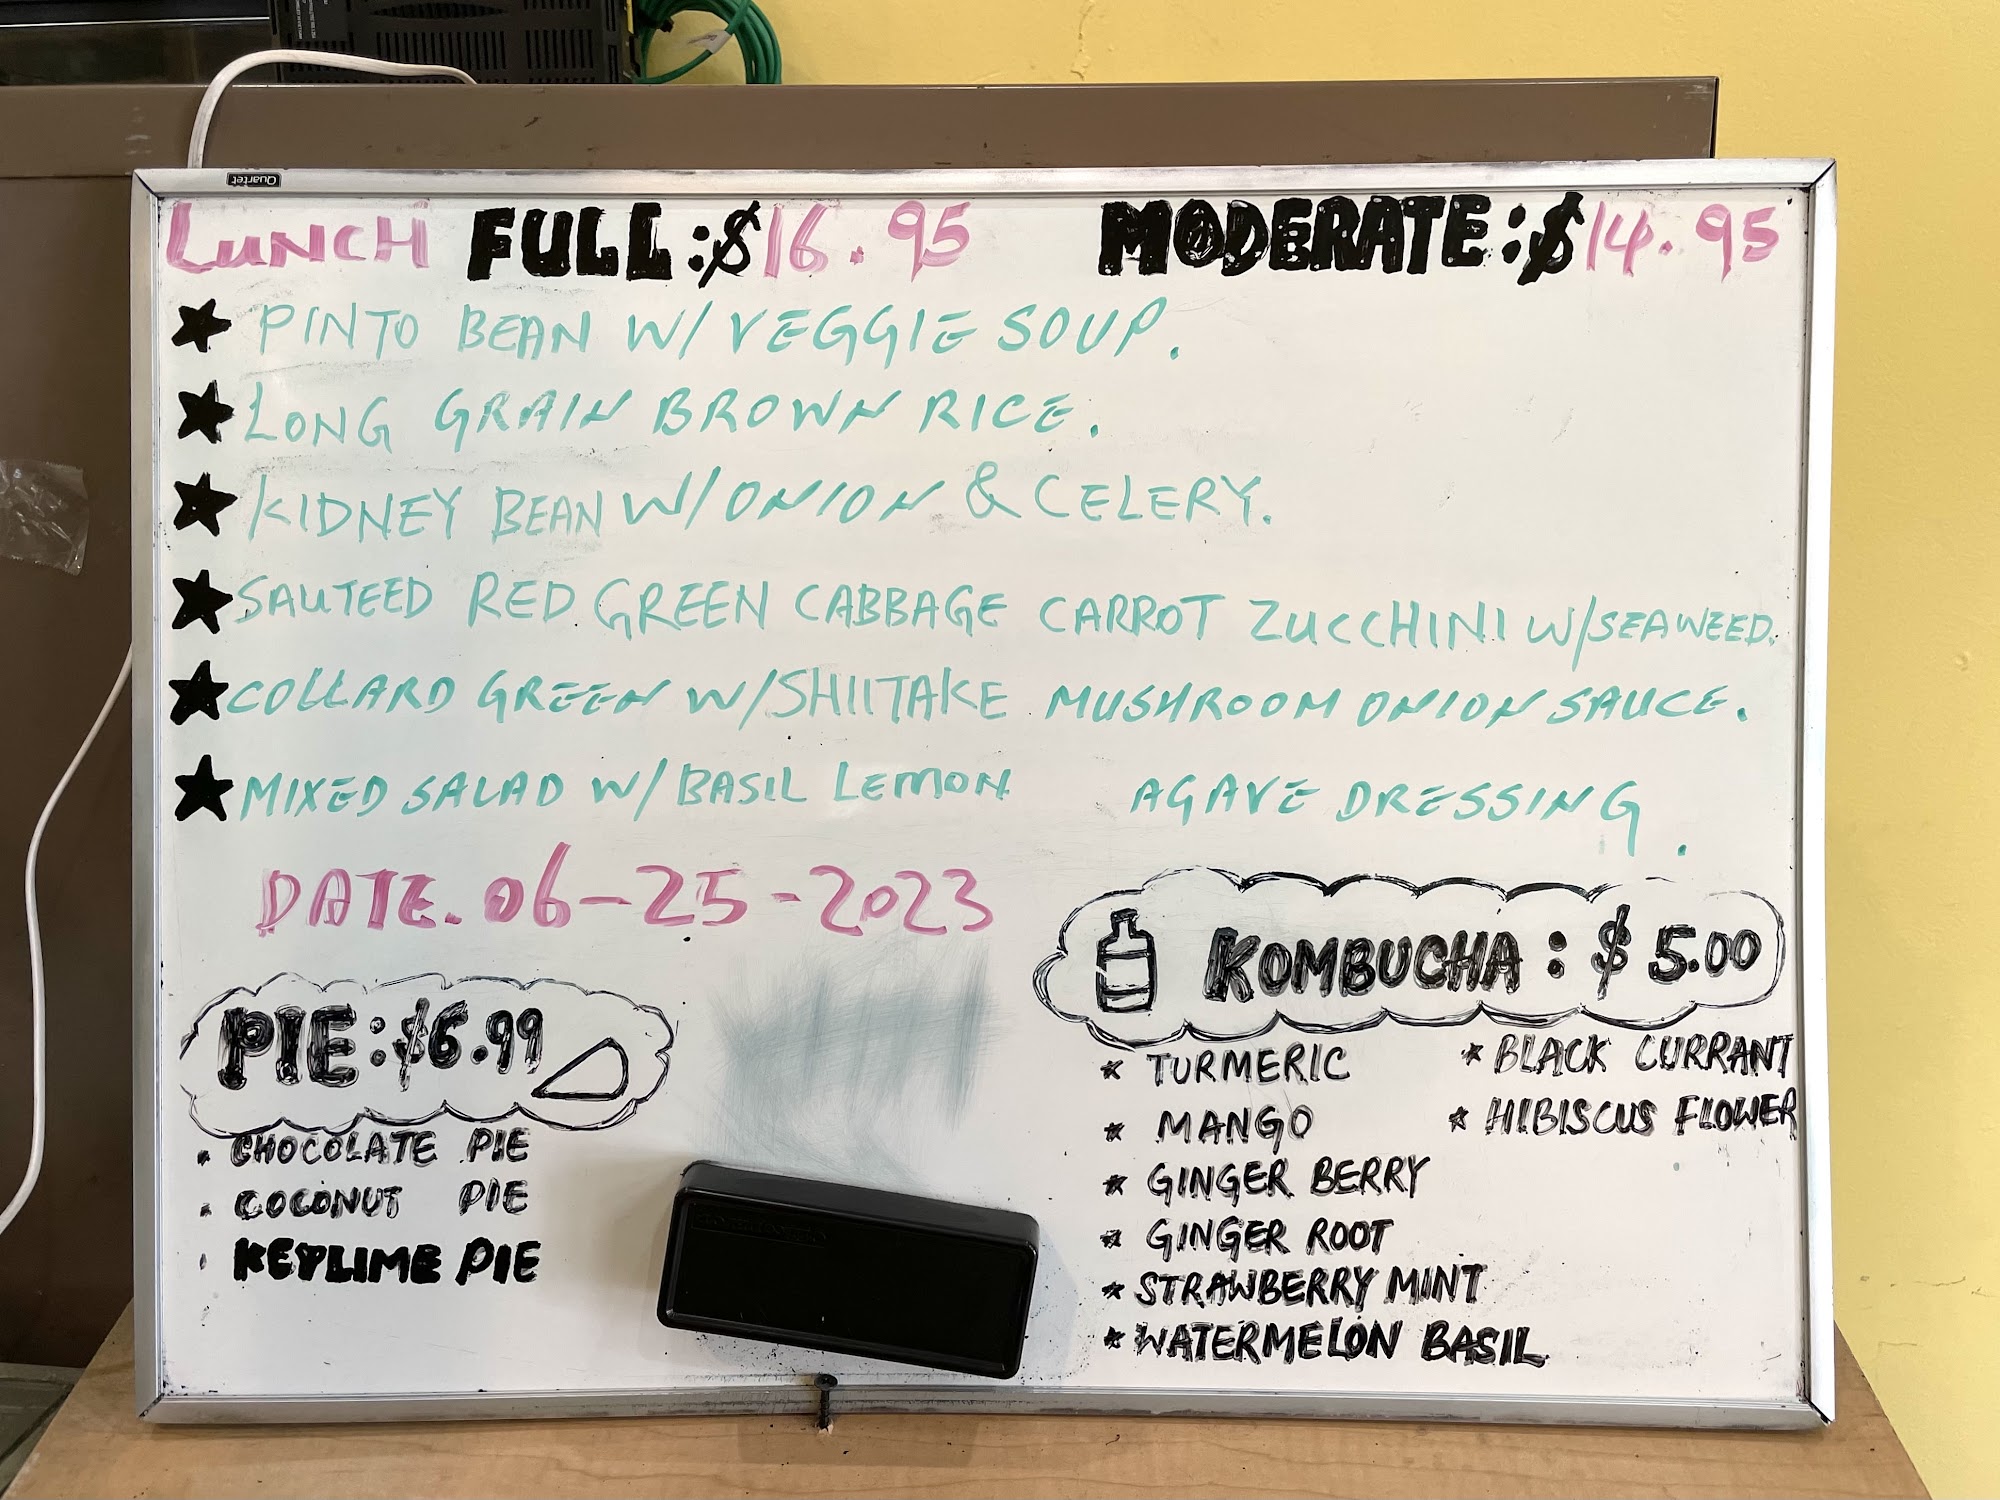 Quartet
LUNCH FULL:$16.95 MODERATE:$14.95
★ PINTO BEAN W/ VEGGIE SOUP.
★ LONG GRAIN BROWN RICE.
★ KIDNEY BEAN W/ ONION & CELERY.
★ SAUTEED RED GREEN CABBAGE CARROT ZUCCHINI W/SEAWEED.
★ COLLARD GREEN W/SHIITAKE MUSHROOM ONION SAUCE.
★ MIXED SALAD W/ BASIL LEMON AGAVE DRESSING.
DATE. 06-25-2023
PIE:$6.99
• CHOCOLATE PIE
• COCONUT PIE
• KEYLIME PIE
KOMBUCHA: $5.00
★ TURMERIC
★ MANGO
★ GINGER BERRY
★ GINGER ROOT
★ STRAWBERRY MINT
★ WATERMELON BASIL
★ BLACK CURRANT
★ HIBISCUS FLOWER